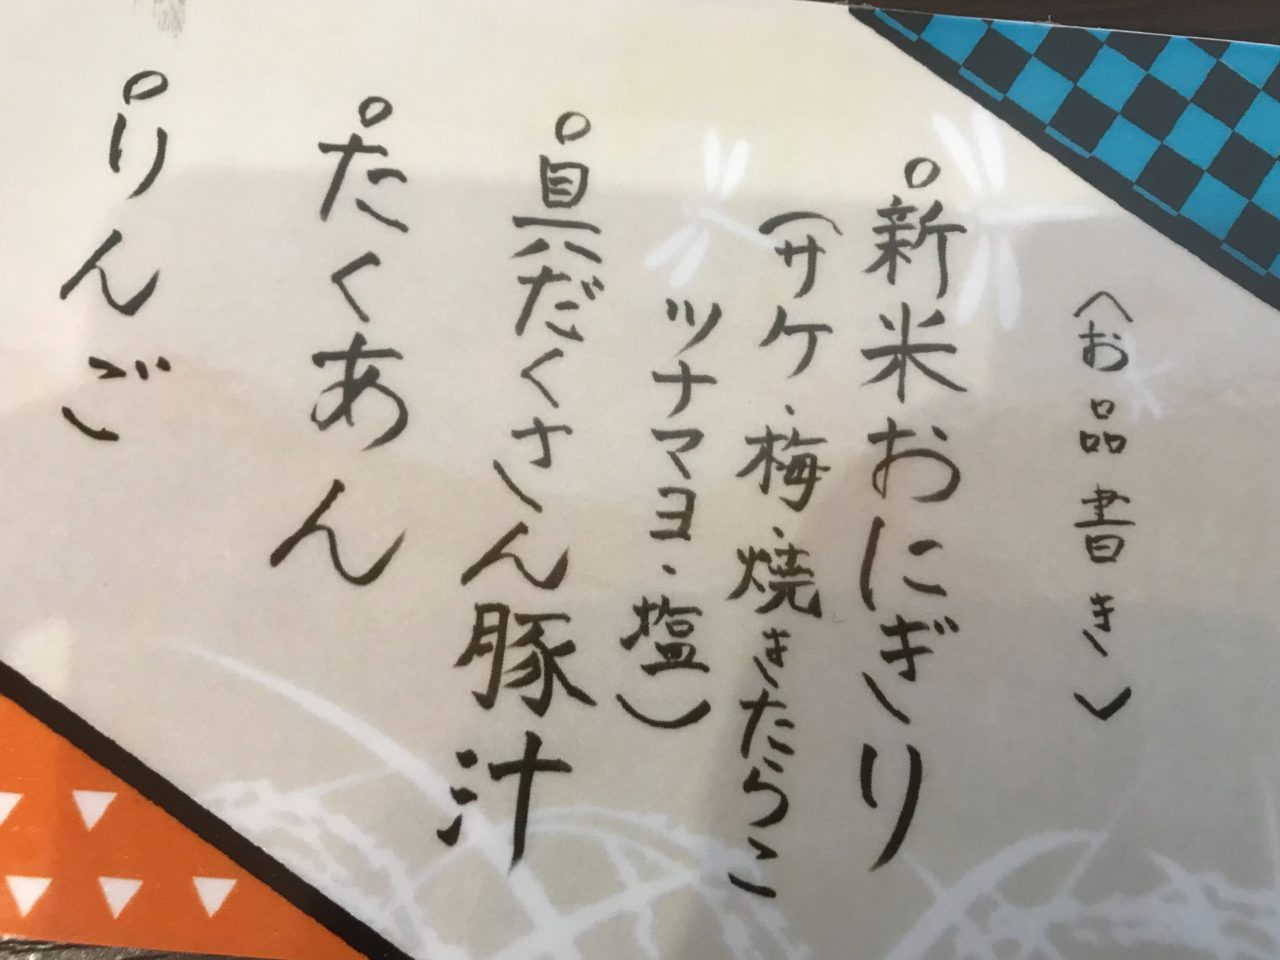 〈お品書き〉
○新米おにぎり
(サケ・梅・焼きたらこ
ツナマヨ・塩)
○具だくさん豚汁
○たくあん
○りんご